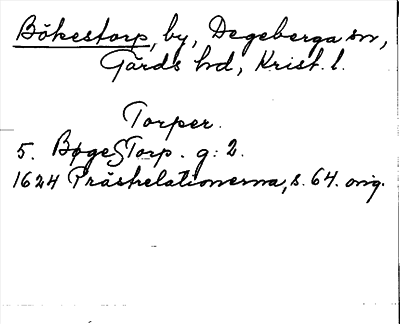 Bökestorp, by, Degeberga sn,
Gärds hd, Krist. l.
Torper.
5. BøgesTorp. g: 2.
1624 Prästrelationerna, s. 64. orig.